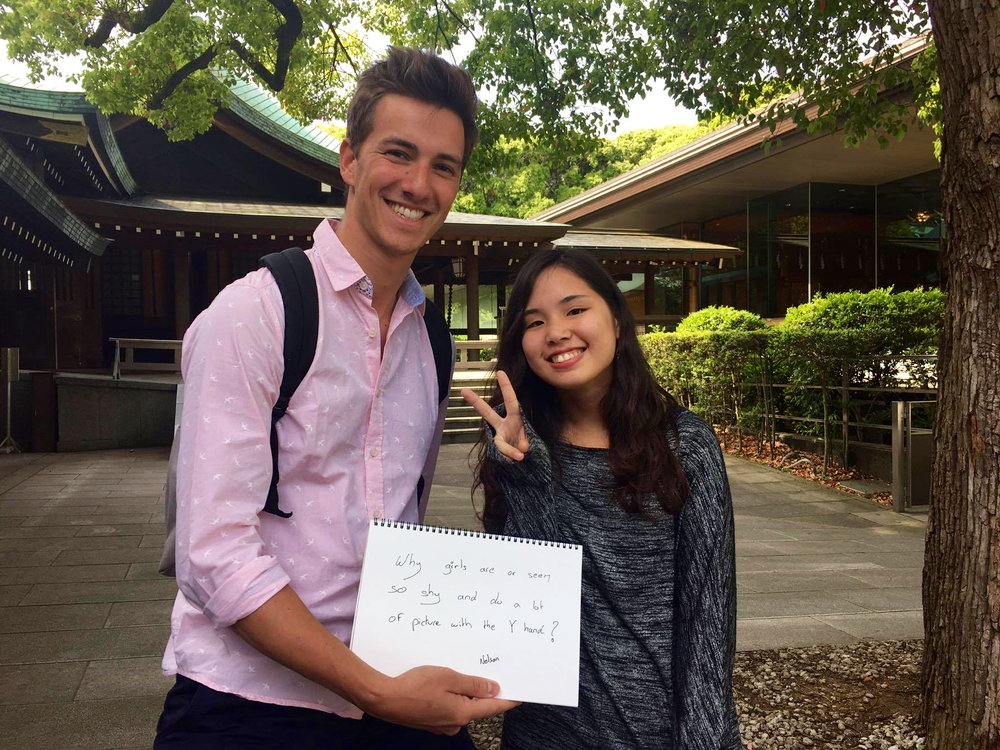 Why girls are or seem
so shy and do a lot
of picture with the Y hand?
Nelson